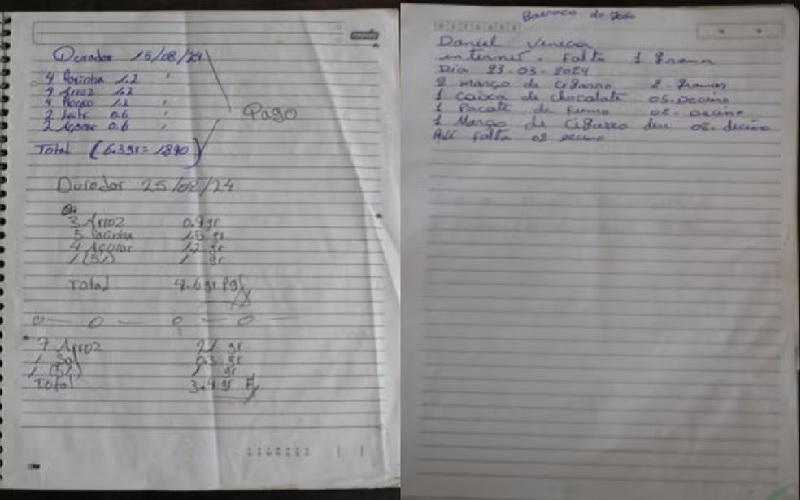 Dorador 15/08/24
4 Farinha 1.2
4 Arroz 1.2
4 1.2
2 Leite 0.6
2 Açocar 0.6
Pago
Total (6.3gr = 1890)
Dorador 25/08/24
3 Arroz 0.9 gr
5 Farinha 1.5 gr
4 Açocar 1.2 gr
1 (51) 1 gr
Total 4.6 gr Pg
7 Arroz 2.1 gr
1 Sal 0.3 gr
1 (51) 1 gr
Total 3.4 gr
Barraco do João
Daniel
internet. Falta 1 Grama
Dia 23-03-2024
2 março de Cigarro 2-gramas
1 Caixa de chocolate 05-Decimo
1 Pacote de Fumo 05-Decimo
1 Março de Cigarro deu 08-decimo
falta 02 Decimo